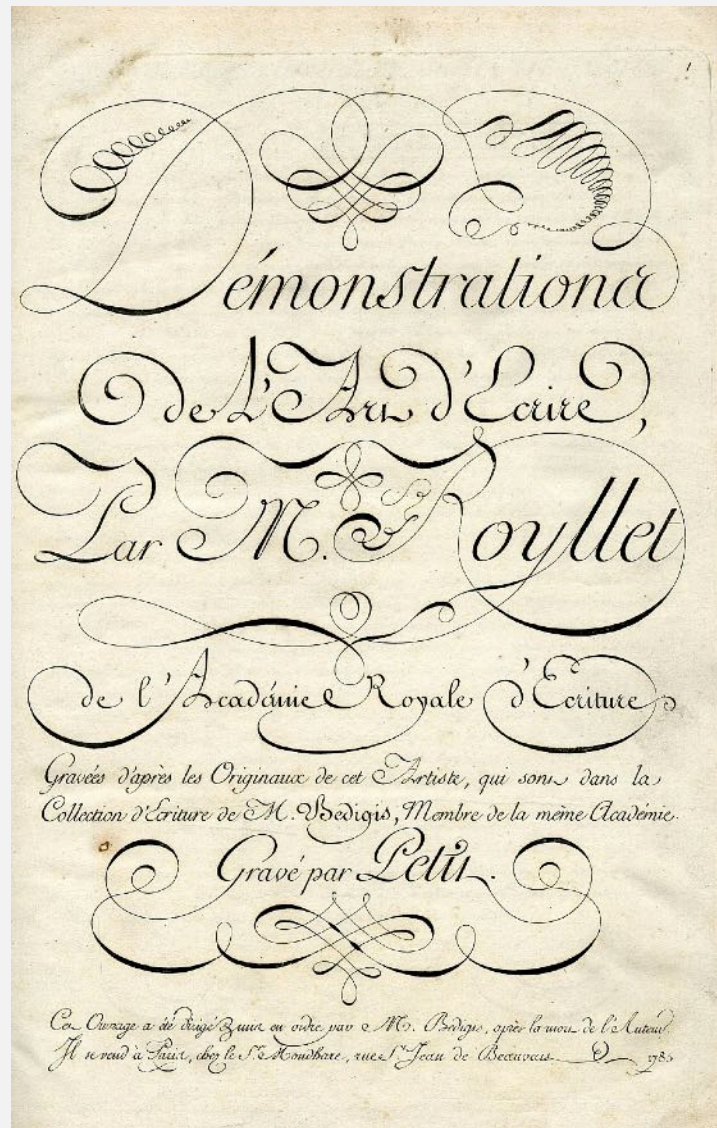 1
Démonstrations
de l'Art d'Ecrire,
Par M. Royllet
de l'Académie Royale d'Ecriture
Gravées d'après les Originaux de cet Artiste, qui sont dans la
Collection d'Ecriture de M. Bedigis, Membre de la même Académie.
Gravé par Petit.
Cet Ouvrage a été dirigé & mis en ordre par M. Bedigis, après la mort de l'Auteur.
Il se vend à Paris, chez le Sr. Mondhare, rue St. Jean de Beauvais